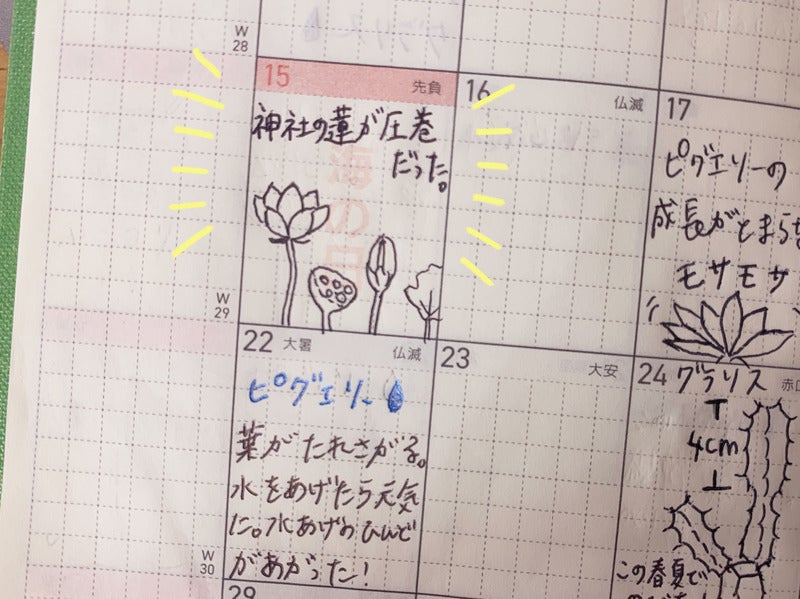 W
28
15
先負
神社の蓮が圧巻
だった。
海の日
W
29
16
仏滅
17
ピグエリーの
成長がとまらな
モサモサ
22
大暑
仏滅
ピグエリー
葉がたれさがる。
水をあげたら元気
だ。水あげのひんど
があがった!
W
30
23
大安
24
赤口
グラリス
4cm
この春夏で
29